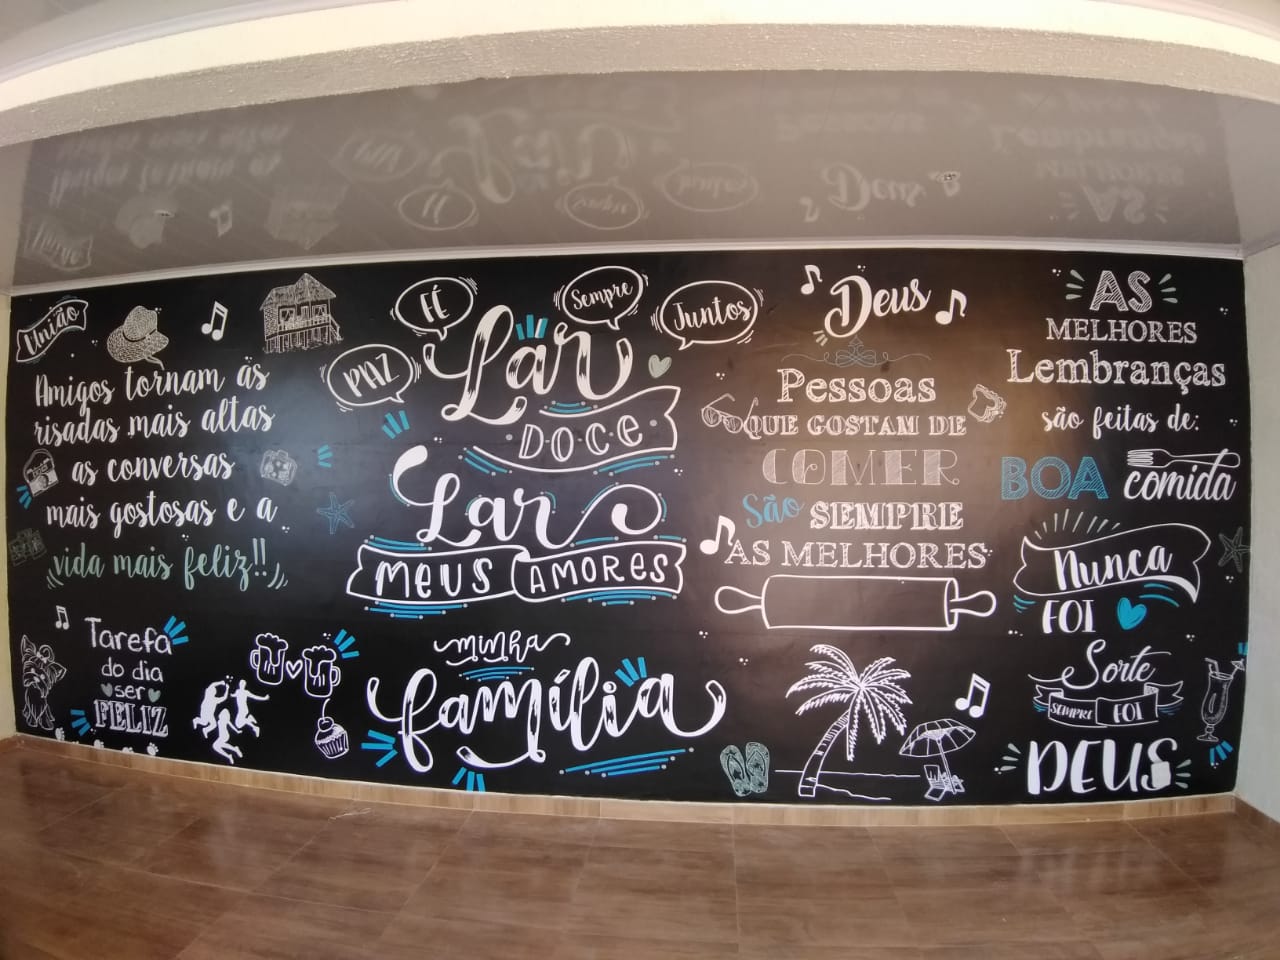 União
Amigos tornam as
risadas mais altas
as conversas
mais gostosas e a
vida mais feliz!!
Tarefa
do dia
ser
FELIZ
FÉ
Sempre
Juntos
PAZ
Lar
DOCE
Lar
MEUS AMORES
minha
família
Deus
Pessoas
QUE GOSTAM DE
COMER
São SEMPRE
AS MELHORES
AS
MELHORES
Lembranças
são feitas de:
BOA comida
Nunca
FOI
Sorte
SEMPRE FOI
DEUS